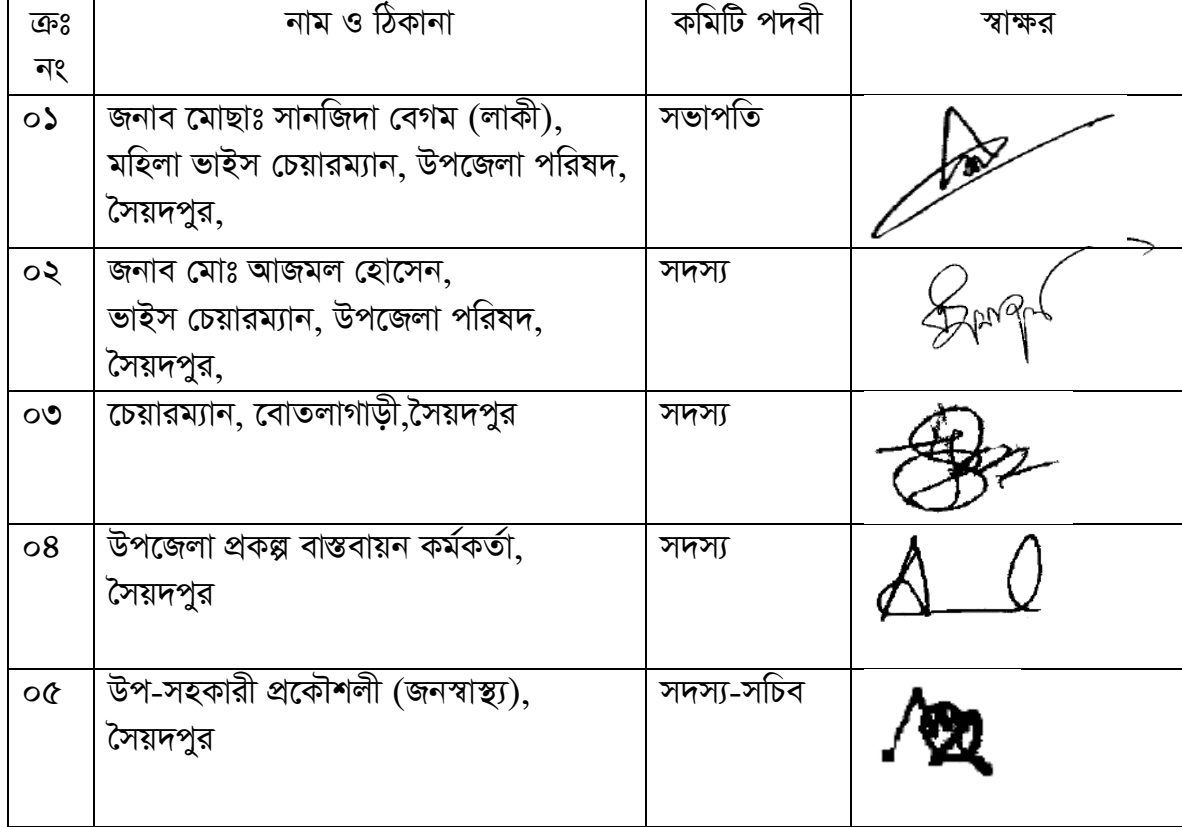 ক্রঃ নং নাম ও ঠিকানা কমিটি পদবী স্বাক্ষর
০১ জনাব মোছাঃ সানজিদা বেগম (লাকী), সভাপতি
মহিলা ভাইস চেয়ারম্যান, উপজেলা পরিষদ,
সৈয়দপুর,
০২ জনাব মোঃ আজমল হোসেন, সদস্য
ভাইস চেয়ারম্যান, উপজেলা পরিষদ,
সৈয়দপুর,
০৩ চেয়ারম্যান, বোতলাগাড়ী,সৈয়দপুর সদস্য
০৪ উপজেলা প্রকল্প বাস্তবায়ন কর্মকর্তা, সদস্য
সৈয়দপুর
০৫ উপ-সহকারী প্রকৌশলী (জনস্বাস্থ্য), সদস্য-সচিব
সৈয়দপুর